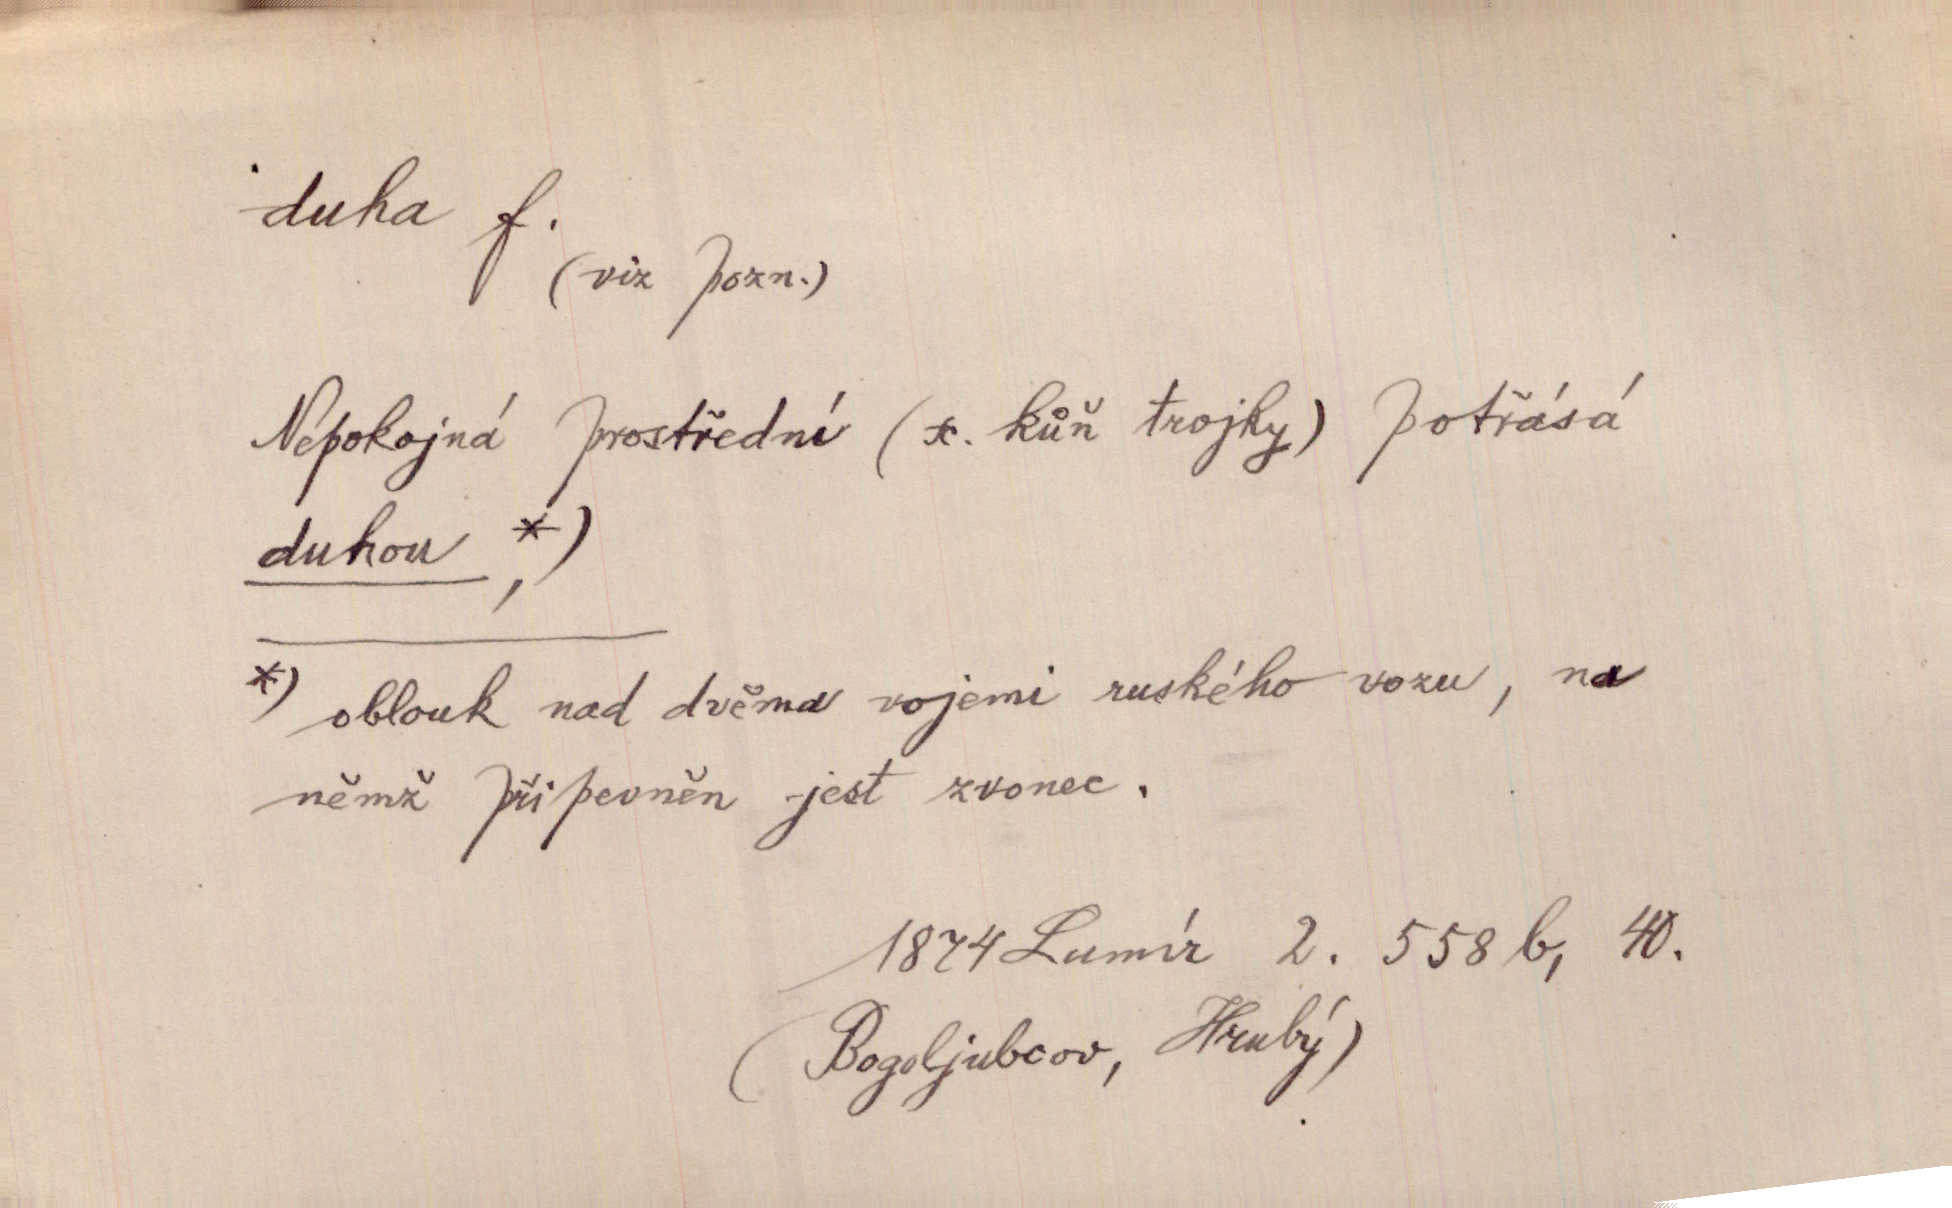 duha f.
(viz pozn.)
Nepokojná prostřední (x. kůň trojky) potřásá
duhou,*)
*) oblouk nad dvěma vojemi ruského vozu, na
němž připevněn jest zvonec.
1874 Lumír 2. 558 b, 40.
(Bogoljubcov, Hrubý)